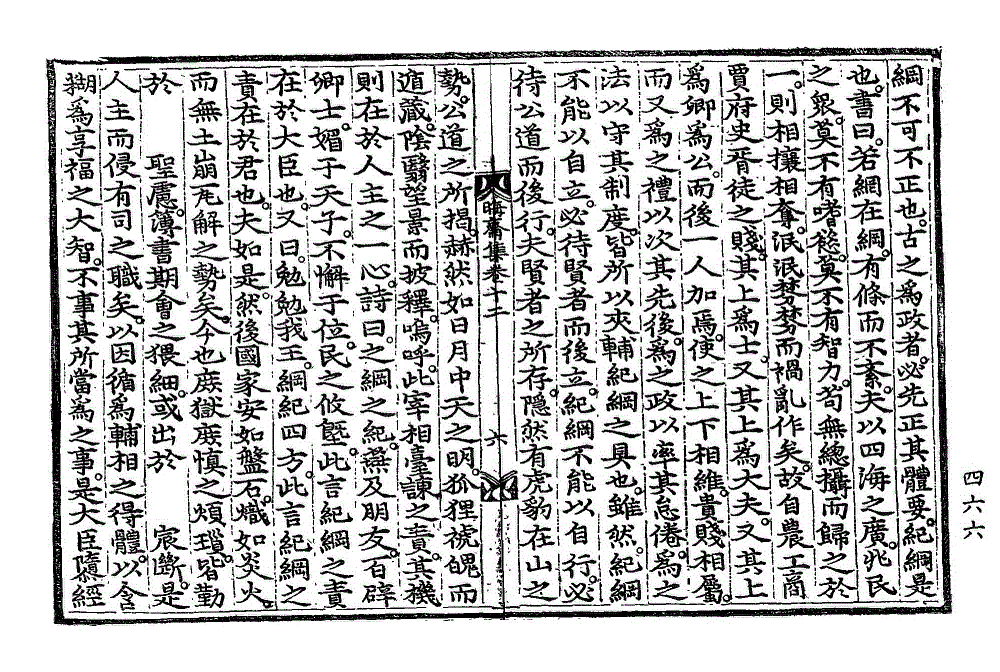 綱不可不正也。古之爲政者。必先正其體要。紀綱是
也。書曰。若網在綱。有條而不紊。夫以四海之廣。兆民
之衆。莫不有嗜慾。莫不有智力。苟無緫攝而歸之於
一。則相攘相奪。泯泯棼棼而禍亂作矣。故自農工商
賈府史胥徒之賤。其上爲士。又其上爲大夫。又其上
爲卿爲公。而後一人加焉。使之上下相維。貴賤相屬。
而又爲之禮以次其先後。爲之政以率其怠倦。爲之
法以守其制度。皆所以夾輔紀綱之具也。雖然。紀綱
不能以自立。必待賢者而後立。紀綱不能以自行。必
待公道而後行。夫賢者之所存。隱然有虎豹在山之
晦齋集卷十二
六
勢。公道之所揭。赫然如日月中天之明。狐狸䖘魄而
遁藏。陰翳望景而披釋。嗚呼。此宰相臺諫之責。其機
則在於人主之一心。詩曰。之綱之紀。燕及朋友。百辟
卿士。媚于天子。不懈于位。民之攸墍。此言紀綱之責
在於大臣也。又曰。勉勉我王。綱紀四方。此言紀綱之
責在於君也。夫如是。然後國家安如盤石。熾如炎火。
而無土崩瓦解之勢矣。今也庶獄庶愼之煩瑣。皆勤
於　聖慮。簿書期會之猥細。或出於　宸斷。是
人主而侵有司之職矣。以因循爲輔相之得體。以含
糊爲享福之大智。不事其所當爲之事。是大臣隳經
四六六